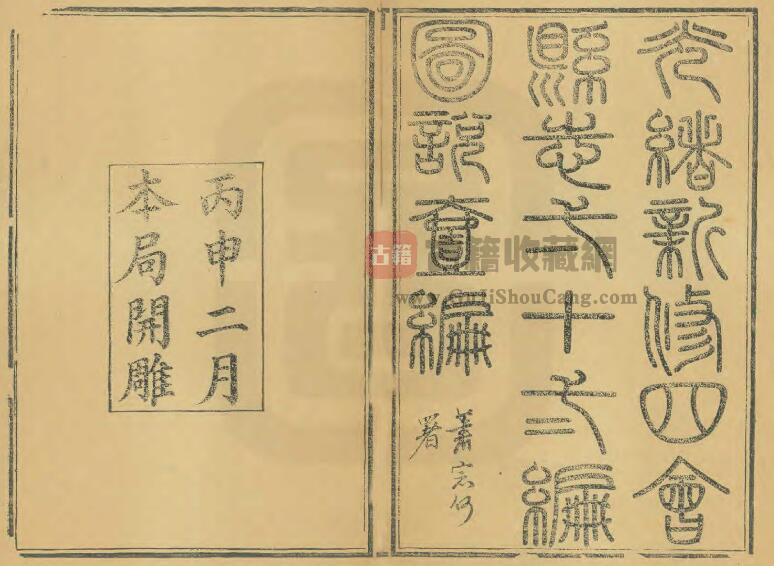 光緒新修四會
縣志十編
圖說壹編
蕭何
署
丙申二月
本局開雕
古籍 古籍收藏網
www.GuJiShouCang.com